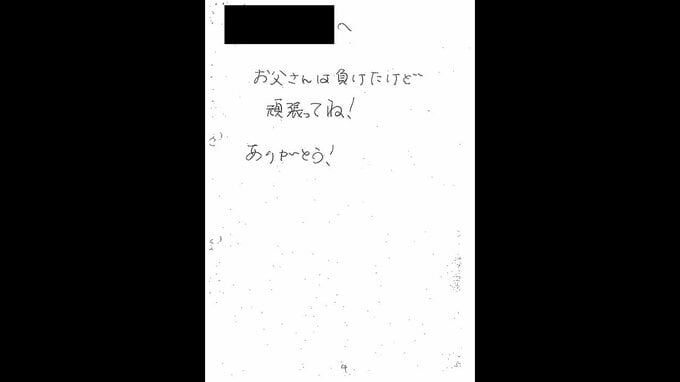 へ
お父さんは負けたけど
頑張ってね!
ありがとう!
4